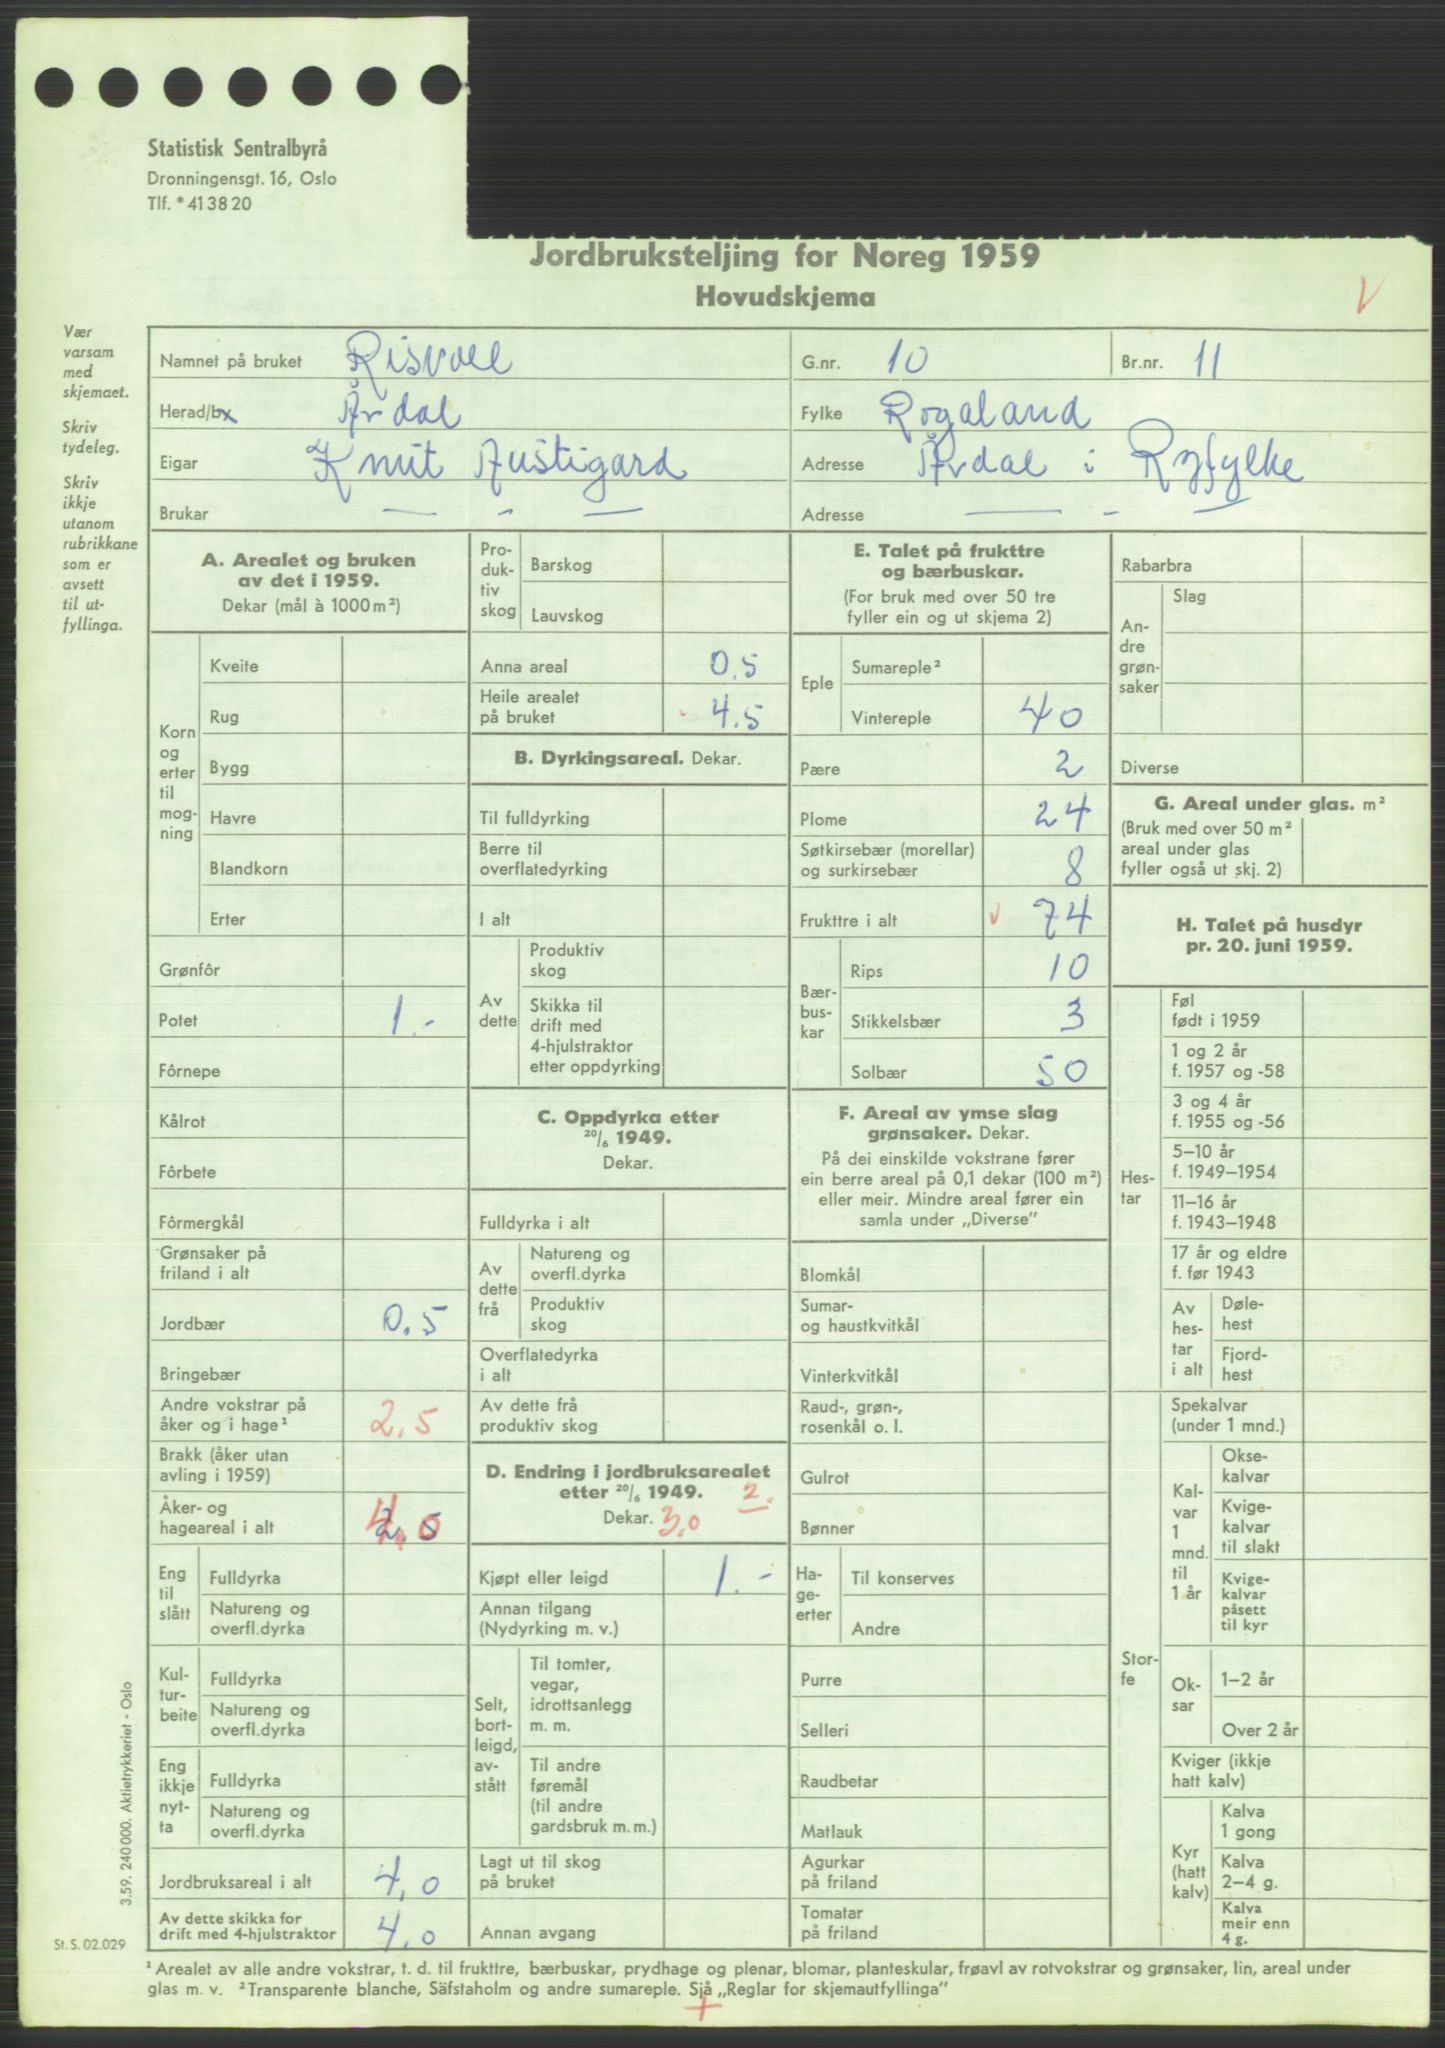 Statistisk Sentralbyrå
Dronningensgt. 16, Oslo
Tlf. * 41 38 20
Jordbruksteljing for Noreg 1959
Hovudskjema
V
Vær
varsam
med
skjemaet.
Skriv
tydeleg.
Skriv
ikkje
utanom
rubrikkane
som er
avsett
til ut-
fyllinga.
Namnet på bruket Risvoll G.nr. 10 Br.nr. 11
Herad/by Årdal Fylke Rogaland
Eigar Knut Austigard Adresse Årdal i Ryfylke
Brukar — - — Adresse — - —
A. Arealet og bruken
av det i 1959.
Dekar (mål à 1000 m²)
Korn
og
erter
til
mog-
ning
Kveite
Rug
Bygg
Havre
Blandkorn
Erter
Grønfôr
Potet 1.-
Fôrnepe
Kålrot
Fôrbete
Fôrmergkål
Grønsaker på
friland i alt
Jordbær 0.5
Bringebær
Andre vokstrar på
åker og i hage¹ 2,5
Brakk (åker utan
avling i 1959)
Åker- og
hageareal i alt 4,0
Eng
til
slått
Fulldyrka
Natureng og
overfl.dyrka
Kul-
tur-
beite
Fulldyrka
Natureng og
overfl.dyrka
Eng
ikkje
nyt-
ta
Fulldyrka
Natureng og
overfl.dyrka
Jordbruksareal i alt 4,0
Av dette skikka for
drift med 4-hjulstraktor 4,0
Pro-
duk-
tiv
skog
Barskog
Lauvskog
Anna areal 0.5
Heile arealet
på bruket 4.5
B. Dyrkingsareal. Dekar.
Til fulldyrking
Berre til
overflatedyrking
I alt
Av
dette
Produktiv
skog
Skikka til
drift med
4-hjulstraktor
etter oppdyrking
C. Oppdyrka etter
20/6 1949.
Dekar.
Fulldyrka i alt
Av
dette
frå
Natureng og
overfl.dyrka
Produktiv
skog
Overflatedyrka
i alt
Av dette frå
produktiv skog
D. Endring i jordbruksarealet
etter 20/6 1949. 2.
Dekar. 3,0
Kjøpt eller leigd 1.-
Annan tilgang
(Nydyrking m. v.)
Selt,
bort-
leigd,
av-
stått
Til tomter,
vegar,
idrottsanlegg
m. m.
Til andre
føremål
(til andre
gardsbruk m. m.)
Lagt ut til skog
på bruket
Annan avgang
E. Talet på frukttre
og bærbuskar.
(For bruk med over 50 tre
fyller ein og ut skjema 2)
Eple
Sumareple²
Vintereple 40
Pære 2
Plome 24
Søtkirsebær (morellar)
og surkirsebær 8
Frukttre i alt V 74
Bær-
bus-
kar
Rips 10
Stikkelsbær 3
Solbær 50
F. Areal av ymse slag
grønsaker. Dekar.
På dei einskilde vokstrane fører
ein berre areal på 0,1 dekar (100 m²)
eller meir. Mindre areal fører ein
samla under „Diverse”
Blomkål
Sumar-
og haustkvitkål
Vinterkvitkål
Raud-, grøn-,
rosenkål o. l.
Gulrot
Bønner
Ha-
ge-
erter
Til konserves
Andre
Purre
Selleri
Raudbetar
Matlauk
Agurkar
på friland
Tomatar
på friland
Rabarbra
An-
dre
grøn-
saker
Slag
Diverse
G. Areal under glas. m²
(Bruk med over 50 m²
areal under glas
fyller også ut skj. 2)
H. Talet på husdyr
pr. 20. juni 1959.
Hes-
tar
Føl
født i 1959
1 og 2 år
f. 1957 og -58
3 og 4 år
f. 1955 og -56
5–10 år
f. 1949–1954
11–16 år
f. 1943–1948
17 år og eldre
f. før 1943
Av
hes-
tar
i alt
Døle-
hest
Fjord-
hest
Stor-
fe
Spekalvar
(under 1 mnd.)
Kal-
var
1
mnd.
til
1 år
Okse-
kalvar
Kvige-
kalvar
til slakt
Kvige-
kalvar
påsett
til kyr
Ok-
sar
1–2 år
Over 2 år
Kviger (ikkje
hatt kalv)
Kyr
(hatt
kalv)
Kalva
1 gong
Kalva
2–4 g.
Kalva
meir enn
4 g.
3.59. 240 000. Aktietrykkeriet - Oslo
St. S. 02.029
¹ Arealet av alle andre vokstrar, t. d. til frukttre, bærbuskar, prydhage og plenar, blomar, planteskular, frøavl av rotvokstrar og grønsaker, lin, areal under
glas m. v. ² Transparente blanche, Säfstaholm og andre sumareple. Sjå „Reglar for skjemautfyllinga”
+